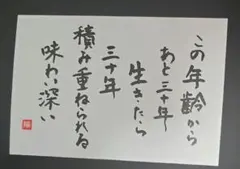 この年齢から
あと三十年
生きたら
三十年
積み重ねられる
味わい深い